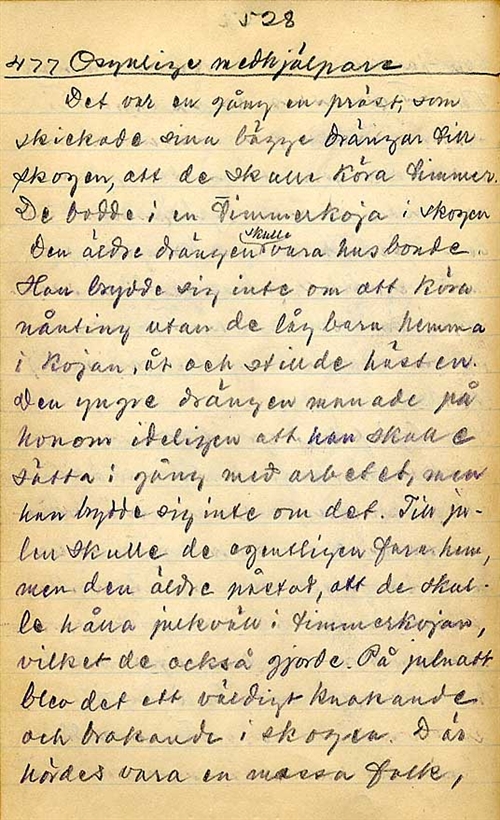 528
477 Osynlige medhjälpare
Det var en gång en präst, som
skickade sina bägge drängar till
skogen, att de skulle köra timmer.
De bodde i en timmerkoja i skogen
Den äldre drängen skulle vara husbonde.
Han brydde sig inte om att köra
nånting utan de låg bara hemma
i kojan, åt och stillde hästen.
Den yngre drängen manade på
honom ideligen att han skulle
sätta i gång med arbetet, men
han brydde sig inte om det. Till ju-
len skulle de egentligen fara hem,
men den äldre påstod, att de skul-
le hålla julkväll i timmerkojan,
vilket de också gjorde. På julnatt
blev det ett väldigt knakande
och brakande i skogen. Där
hördes vara en massa folk,